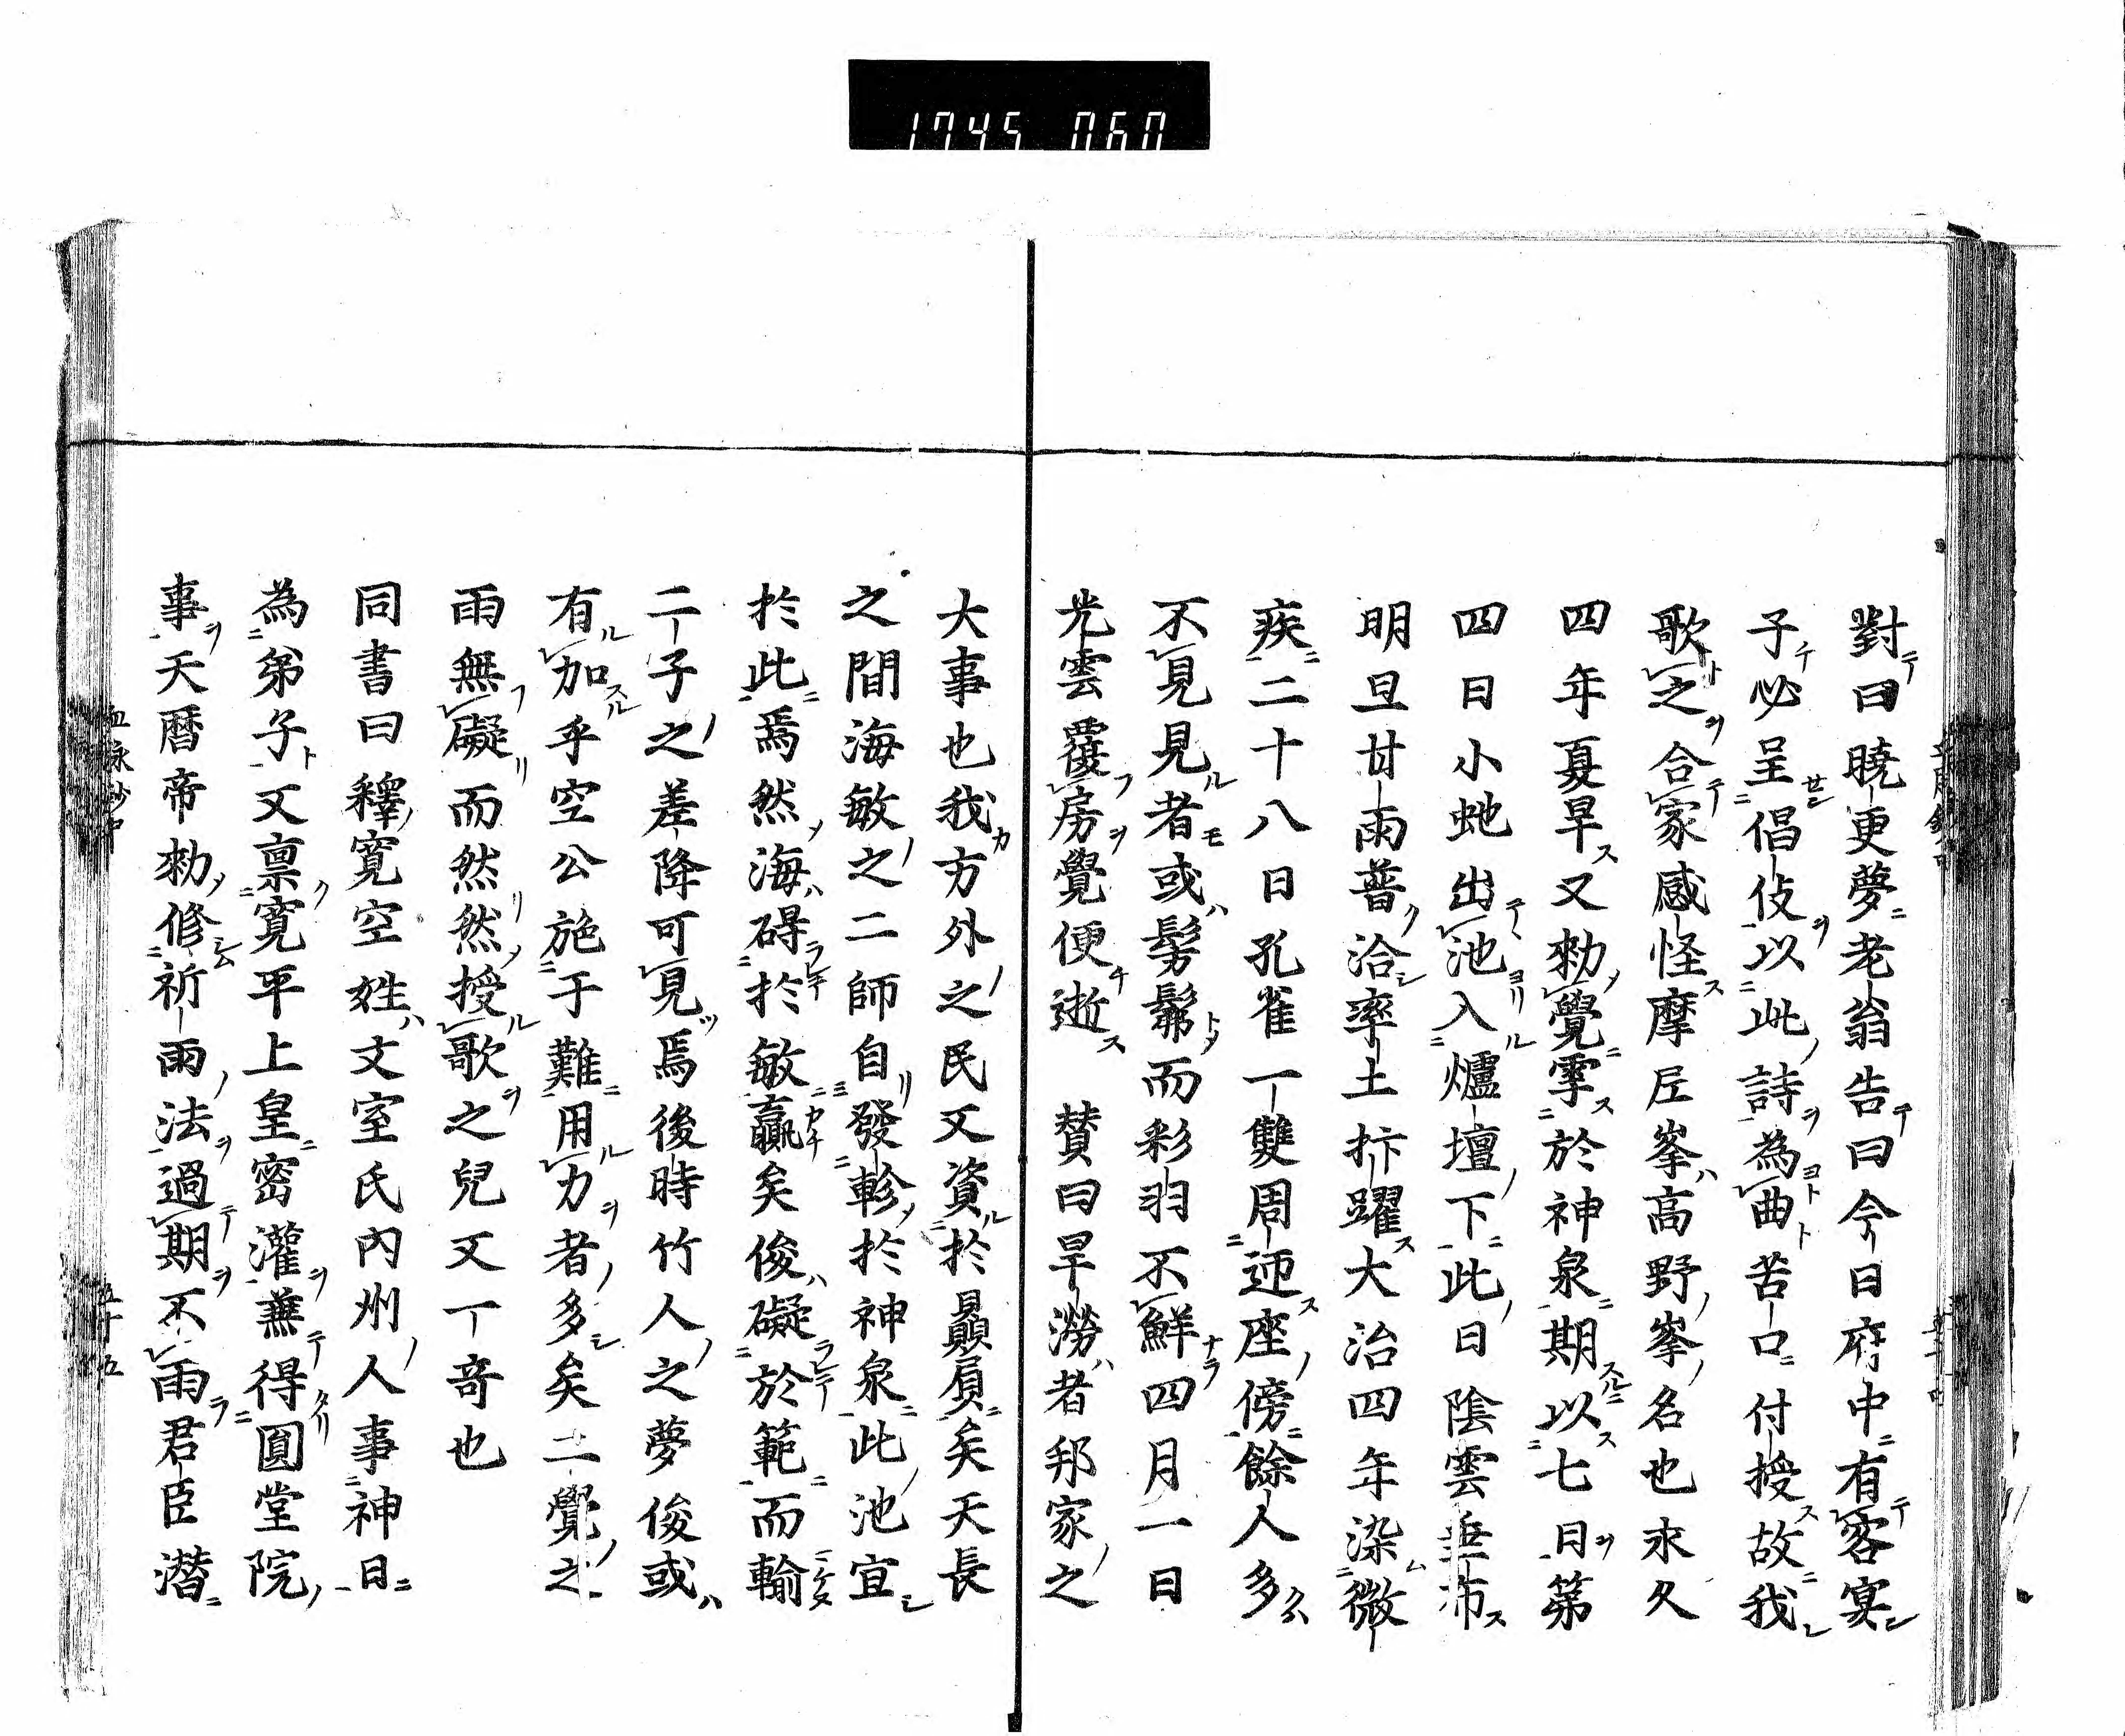 1745 060
對曰曉更夢老翁告曰今日府中有客宴
子必呈倡伎以此詩為曲苦口付授故我
歌之合家感怪摩尼峯高野峯名也永久
四年夏旱又勅覺雩於神泉期以七日第
四日小虵出池入爐壇下此日陰雲垂布
明旦甘雨普洽率土抃躍大治四年染微
疾二十八日孔雀一雙周迊座傍餘人多
不見見者或髣髴而彩羽不鮮四月一日
光雲覆房覺便逝 賛曰旱澇者邦家之
大事也我方外之民又資於贔屓矣天長
之間海敏之二師自發軫於神泉此池宜
於此焉然海碍於敏贏矣俊礙於範而輸
二子之差降可見焉後時竹人之夢俊或
有加乎空公施于難用力者多矣二覺之
雨無礙而然然授歌之兒又一竒也
同書曰釋寬空姓文室氏內州人事神日
為弟子又禀寬平上皇密灌蕪得圓堂院
事天曆帝勅修祈雨法過期不雨君臣潜
五十五